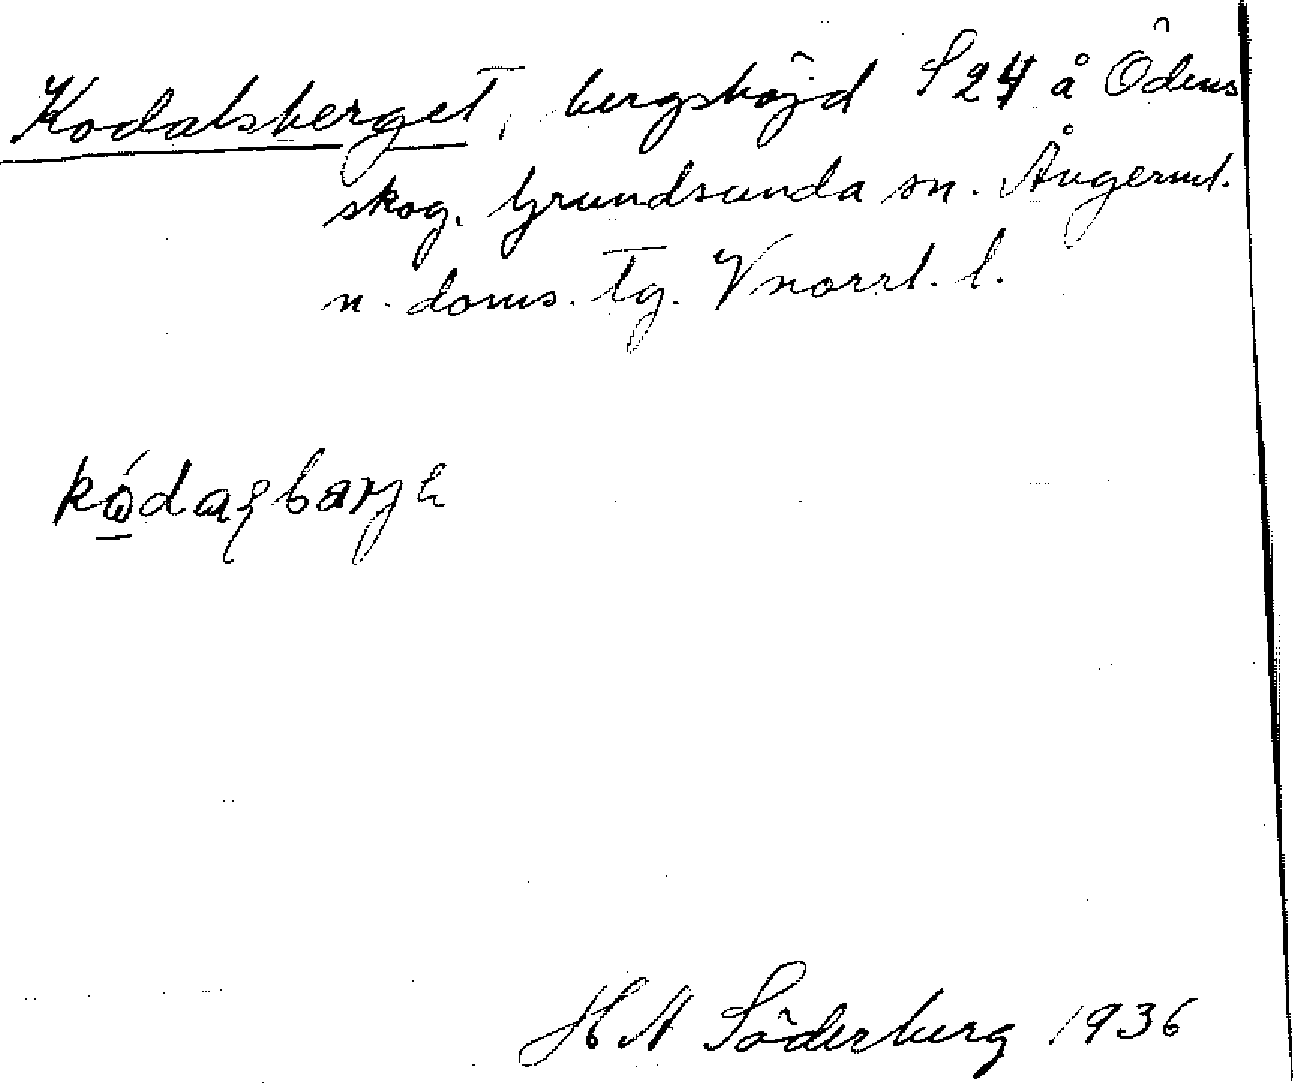 Kodalsberget, bergshöjd S 24 å Ödens
skog. Grundsunda sn. Ångerml.
n. doms. Tg. Vnorrl. l.
H A Söderberg 1936